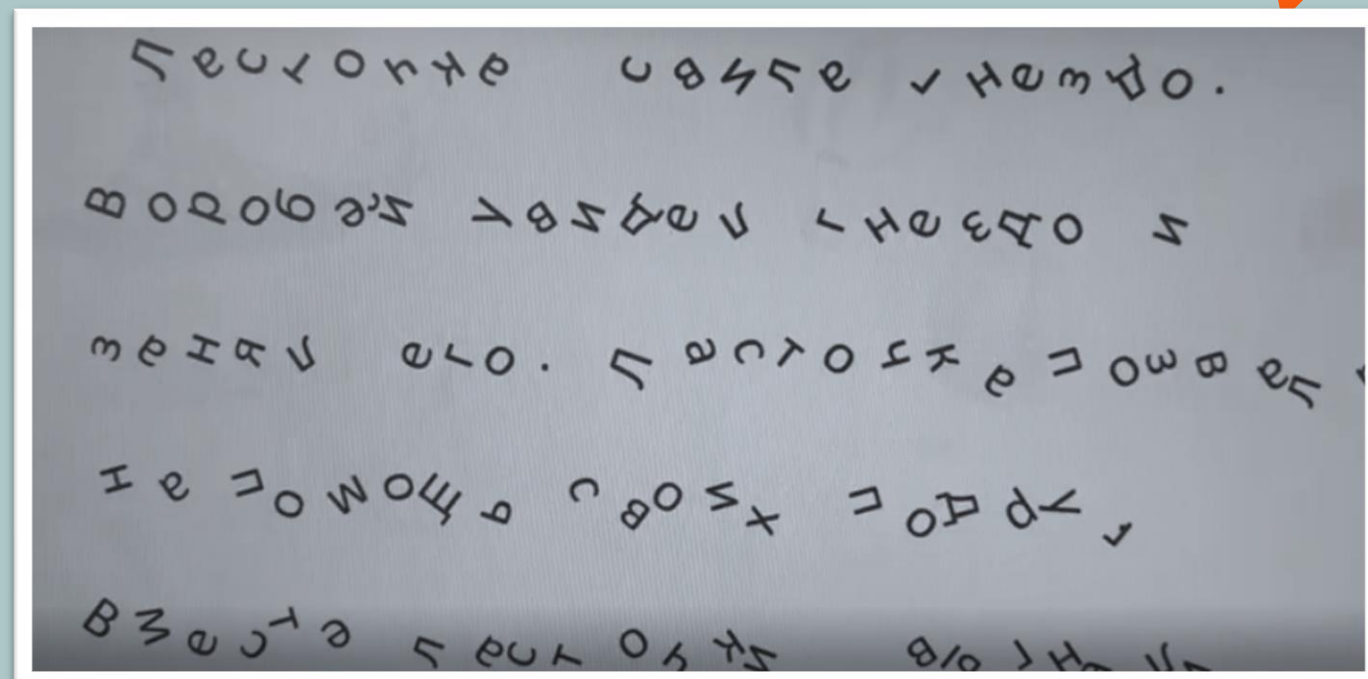 Ласточка свила гнездо.
Воробей увидел гнездо и
занял его. Ласточка позвала
на помощь своих подруг
Вместе ласточки выгнали